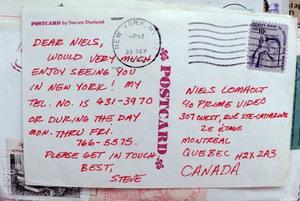 POSTCARD by Steven Durland
NEW YORK, N.Y.
PM
23 SEP
DEAR NIELS,
WOULD VERY MUCH
ENJOY SEEING YOU
IN NEW YORK! MY
TEL. NO. IS 431-3970
OR DURING THE DAY
MON. THRU FRI.
766-5575.
PLEASE GET IN TOUCH
BEST,
STEVE
POSTCARD
NIELS LOMHOLT
90 PRIME VIDEO
307 WEST, RUE STE-CATHERINE
2E ÉTAGE
MONTREAL
QUEBEC H2X 2A3
CANADA